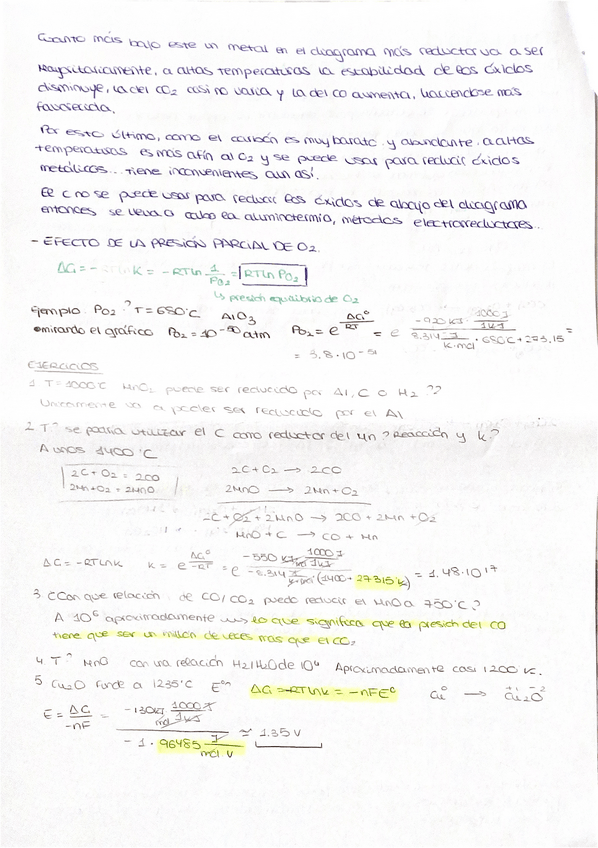 Cuanto más bajo este un metal en el diagrama más reductor va a ser
Mayoritariamente, a altas temperaturas la estabilidad de los óxidos
disminuye, la del CO2 casi no varia y la del CO aumenta, haciendose más
favorecida.
Por esto último, como el carbón es muy barato y abundante. a altas
temperaturas es más afín al O2 y se puede usar para reducir óxidos
metálicos... tiene inconvenientes aun así.
El C no se puede usar para reducir los óxidos de abajo del diagrama
entonces se lleva a cabo la aluminotermia, métodos electrorreductores..
- EFECTO DE LA PRESIÓN PARCIAL DE O2.
K = -RTLn 1/PO2 = RTLn PO2
↳ presión equilibrio de O2
Ejemplo. PO2? T=680°C AlO3
mirando el gráfico PO2 = 10^-50 atm PO2 = e^(ΔG°/RT) = e^(-920 kJ · 1000 J/1 kJ / 8.314 J/K·mol · 680C + 273.15) =
= 3.8·10^-51
EJERCICIOS
1. T=1000°C MnO2 puede ser reducido por Al, C o H2??
Unicamente va a poder ser reducido por el Al
2. Tª se podría utilizar el C como reductor del Mn? Reacción y K?
A unos 1400 °C
2C + O2 = 2CO
2Mn+O2 = 2MnO
2C + O2 → 2CO
2MnO → 2Mn + O2
2C + O2 + 2MnO → 2CO + 2Mn + O2
MnO + C → CO + Mn
ΔG = -RTLnK K = e^(ΔG°/-RT) = e^(-550 kJ/mol · 1000 J/1 kJ / -8.314 J/K·mol · (1400 + 273.15 K)) = 1.48·10^17
3. ¿Con que relación de CO/CO2 puedo reducir el MnO a 750°C?
A 10^6 aproximadamente ~> lo que significa que la presión del CO
tiene que ser un millón de veces mas que el CO2
4. Tª MnO con una relación H2/H2O de 10^4 Aproximadamente casi 1200 K.
5 Cu2O funde a 1235°C ΔG = -RTLnK = -nFE° Cu° → Cu2O
E = ΔG/-nF = -130 kJ/mol · 1000 J/1 kJ / -1 · 96485 J/mol·V ≈ 1.35 V